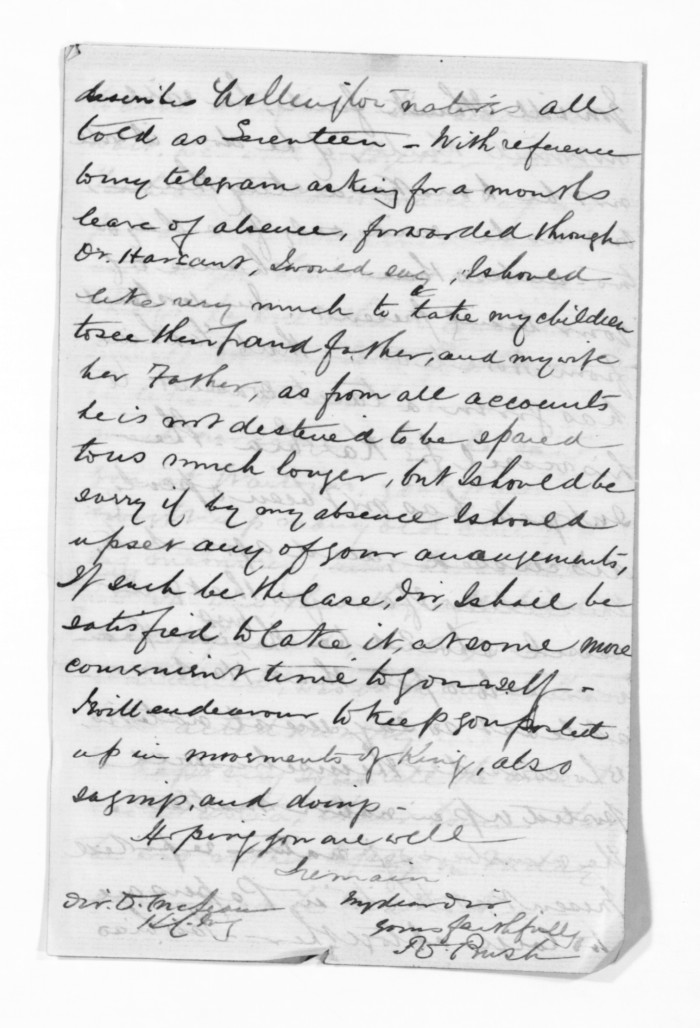 describes Wellington natives all
told as Seventeen - With reference
to my telegram asking for a months
leave of absence, forwarded through
Dr. Harsant, I would say, I should
like very much to take my children
to see their grand father, and my wife
her Father, as from all accounts
he is not destined to be spared
to us much longer, but I should be
sorry if by my absence I should
upset any of your arrangements,
If such be the case, Sir, I shall be
satisfied to take it, at some more
convenient time to yourself -
I will endeavour to keep you posted
up in movements of King, also
sayings, and doings -
Hoping you are well
I remain
Sir. D. McLean My dear Sir
yours faithfully
R. Bush